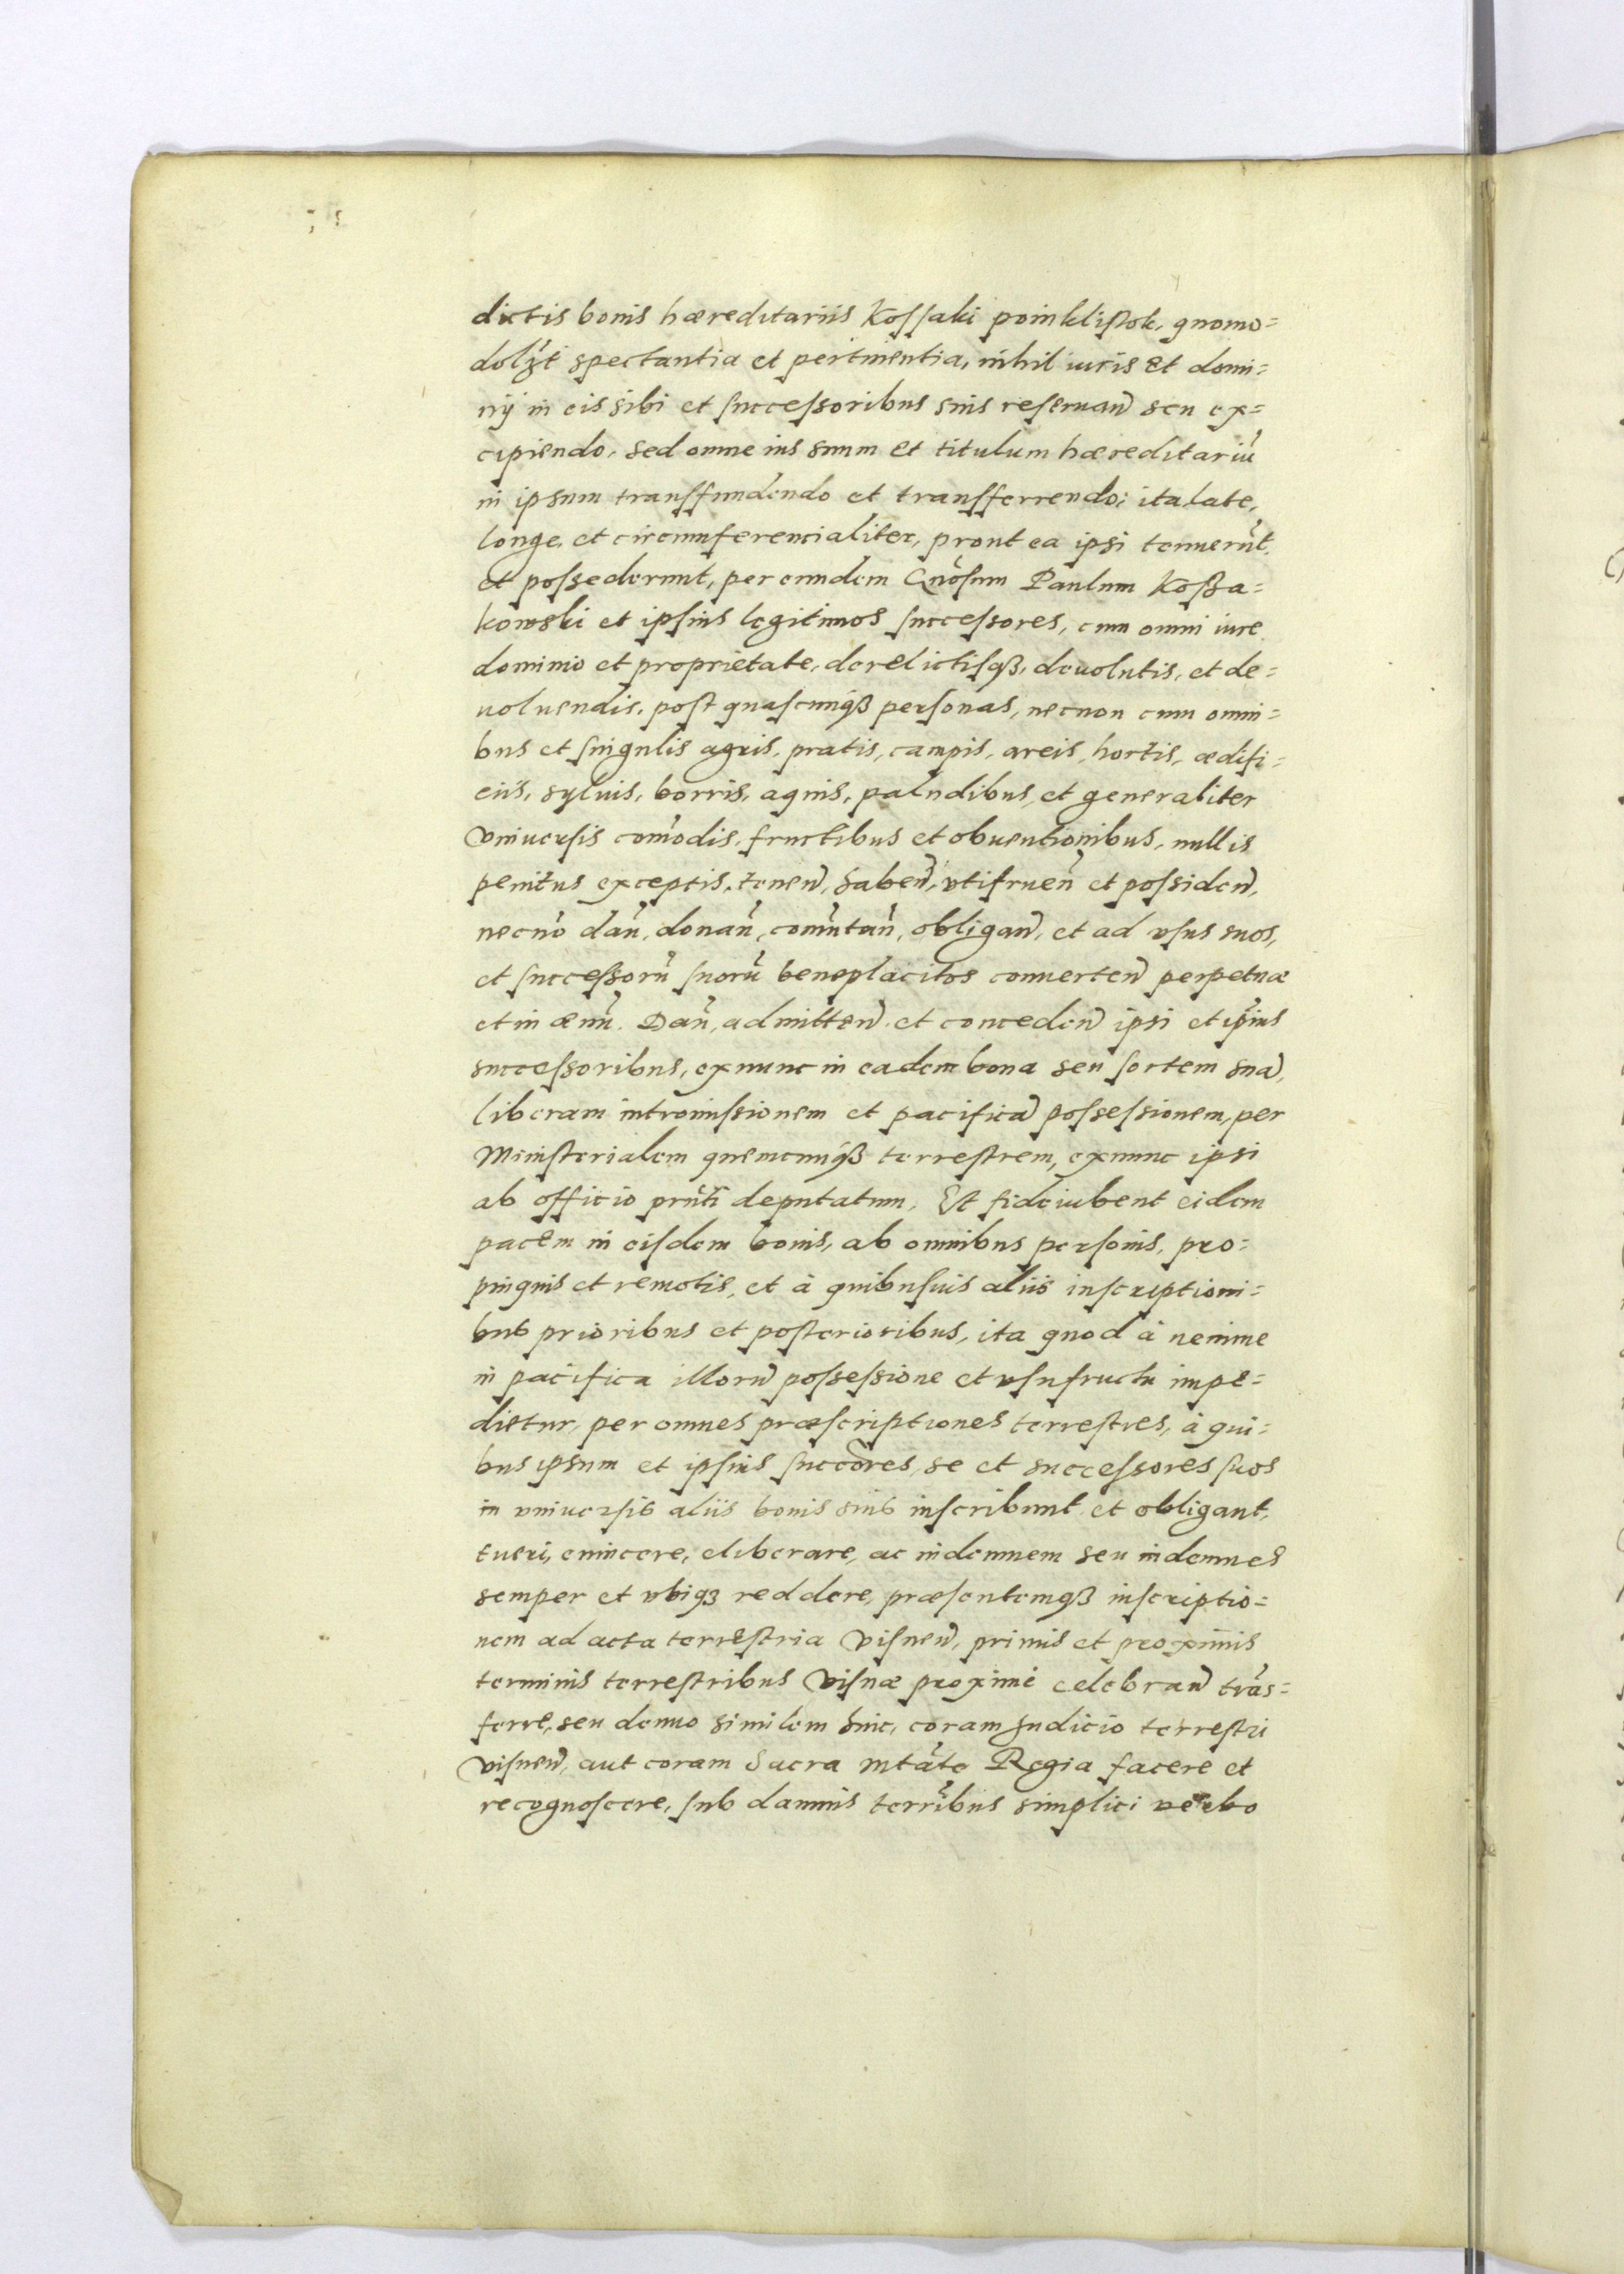 dictis bonis hæreditariis Kossaki poinklistok, quomo=
dolꝫt spectantia et pertinentia, nihil iuris et domi=
nij in eis sibi et successoribus suis reseruan̄ seu ex=
cipiendo, sed omne ius suum et titulum hæreditariū
in ipsum transffundendo et transfferrendo; ita late,
longe, et circumferencialiter, prout ea ipsi tenuerūt,
et possederunt, per eundem Gn̄osum Paulum Kossa=
kowski et ipsius legitimos successores, cum omni iure
dominio et proprietate, derelictisqꝫ, deuolutis, et de=
uoluendis, post quascunqꝫ personas, necnon cum omni=
bus et singulis agris, pratis, campis, areis, hortis, ædifi=
ciis, syluis, borris, aquis, paludibus, et generaliter
vniuersis com̄odis, fructibus et obuentionibus, nullis
penitus exceptis, tenen̄, haben̄, vtifruen̄ et possiden̄,
necnō dan̄, donan̄, com̄utan̄, obligan̄, et ad vsus suos,
et successorū suorū beneplacitos conuerten̄ perpetuæ
et in æuū. Dan̄, admitten̄ et conceden̄ ipsi et ip̄ius
successoribus, exnunc in eadem bona seu sortem suā,
liberam intromissionem et pacificā possessionem, per
Ministerialem quemcunqꝫ terrestrem, exnunc ipsi
ab officio prn̄ti deputatum. Et fideiubent eidem
pacem in eisdem bonis, ab omnibus personis, pro=
pinquis et remotis, et à quibusuis aliis inscriptioni=
bus prioribus et posterioribus, ita quod à nemine
in pacifica illorū possessione et vsufructu impe=
dietur, per omnes præscriptiones terrestres, à qui=
bus ipsum et ipsius succōres, se et successores suos
in vniuersis aliis bonis suis inscribunt et obligant,
tueri, euincere, eliberare, ac indemnem seu indemnes
semper et vbiqꝫ reddere, præsentemqꝫ inscriptio=
nem ad acta terrestria Visnen̄, primis et proximis
terminis terrestribus Visnæ proxime celebran̄ trās=
ferre, seu denuo similem huic, coram Judicio terrestri
Visnen̄, aut coram Sacra Mtāte Regia facere et
recognoscere, sub damnis terr̄ibus simplici verbo